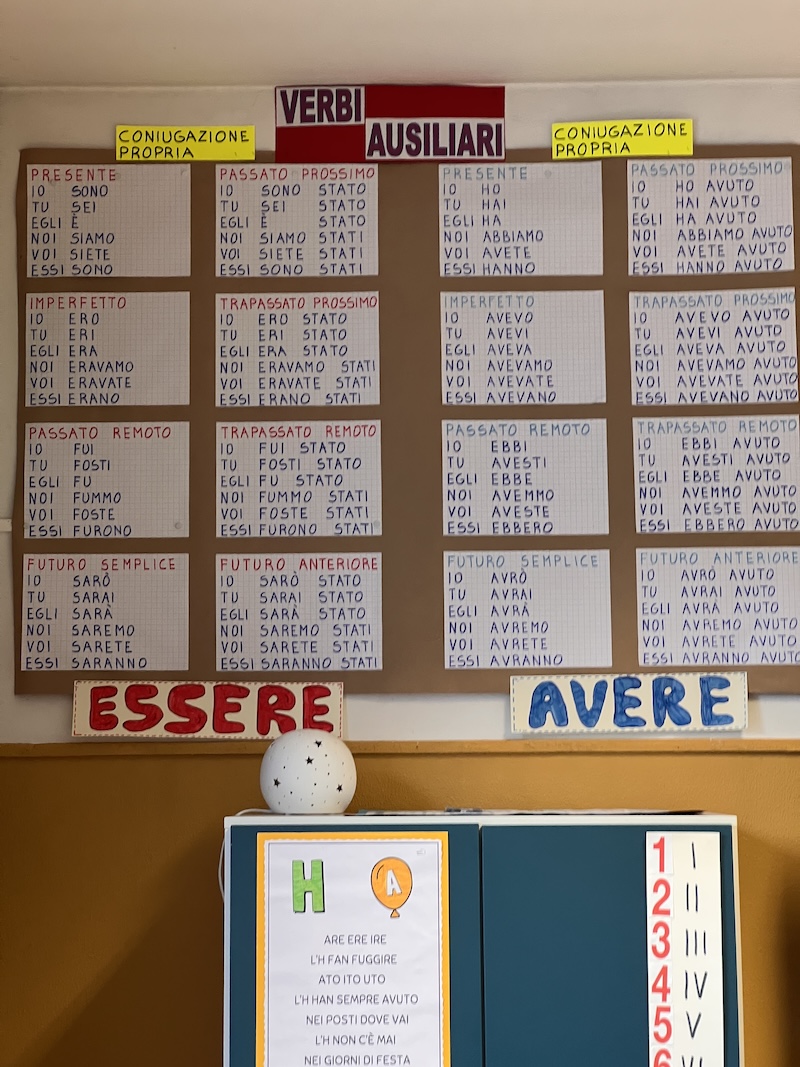 VERBI
AUSILIARI
CONIUGAZIONE
PROPRIA
CONIUGAZIONE
PROPRIA
PRESENTE
IO SONO
TU SEI
EGLI È
NOI SIAMO
VOI SIETE
ESSI SONO
PASSATO PROSSIMO
IO SONO STATO
TU SEI STATO
EGLI È STATO
NOI SIAMO STATI
VOI SIETE STATI
ESSI SONO STATI
PRESENTE
IO HO
TU HAI
EGLI HA
NOI ABBIAMO
VOI AVETE
ESSI HANNO
PASSATO PROSSIMO
IO HO AVUTO
TU HAI AVUTO
EGLI HA AVUTO
NOI ABBIAMO AVUTO
VOI AVETE AVUTO
ESSI HANNO AVUTO
IMPERFETTO
IO ERO
TU ERI
EGLI ERA
NOI ERAVAMO
VOI ERAVATE
ESSI ERANO
TRAPASSATO PROSSIMO
IO ERO STATO
TU ERI STATO
EGLI ERA STATO
NOI ERAVAMO STATI
VOI ERAVATE STATI
ESSI ERANO STATI
IMPERFETTO
IO AVEVO
TU AVEVI
EGLI AVEVA
NOI AVEVAMO
VOI AVEVATE
ESSI AVEVANO
TRAPASSATO PROSSIMO
IO AVEVO AVUTO
TU AVEVI AVUTO
EGLI AVEVA AVUTO
NOI AVEVAMO AVUTO
VOI AVEVATE AVUTO
ESSI AVEVANO AVUTO
PASSATO REMOTO
IO FUI
TU FOSTI
EGLI FU
NOI FUMMO
VOI FOSTE
ESSI FURONO
TRAPASSATO REMOTO
IO FUI STATO
TU FOSTI STATO
EGLI FU STATO
NOI FUMMO STATI
VOI FOSTE STATI
ESSI FURONO STATI
PASSATO REMOTO
IO EBBI
TU AVESTI
EGLI EBBE
NOI AVEMMO
VOI AVESTE
ESSI EBBERO
TRAPASSATO REMOTO
IO EBBI AVUTO
TU AVESTI AVUTO
EGLI EBBE AVUTO
NOI AVEMMO AVUTO
VOI AVESTE AVUTO
ESSI EBBERO AVUTO
FUTURO SEMPLICE
IO SARÒ
TU SARAI
EGLI SARÀ
NOI SAREMO
VOI SARETE
ESSI SARANNO
FUTURO ANTERIORE
IO SARÒ STATO
TU SARAI STATO
EGLI SARÀ STATO
NOI SAREMO STATI
VOI SARETE STATI
ESSI SARANNO STATI
FUTURO SEMPLICE
IO AVRÒ
TU AVRAI
EGLI AVRÀ
NOI AVREMO
VOI AVRETE
ESSI AVRANNO
FUTURO ANTERIORE
IO AVRÒ AVUTO
TU AVRAI AVUTO
EGLI AVRÀ AVUTO
NOI AVREMO AVUTO
VOI AVRETE AVUTO
ESSI AVRANNO AVUTO
ESSERE
AVERE
H A
ARE ERE IRE
L'H FAN FUGGIRE
ATO ITO UTO
L'H HAN SEMPRE AVUTO
NEI POSTI DOVE VAI
L'H NON C'È MAI
NEI GIORNI DI FESTA
1 I
2 II
3 III
4 IV
5 V
6 VI